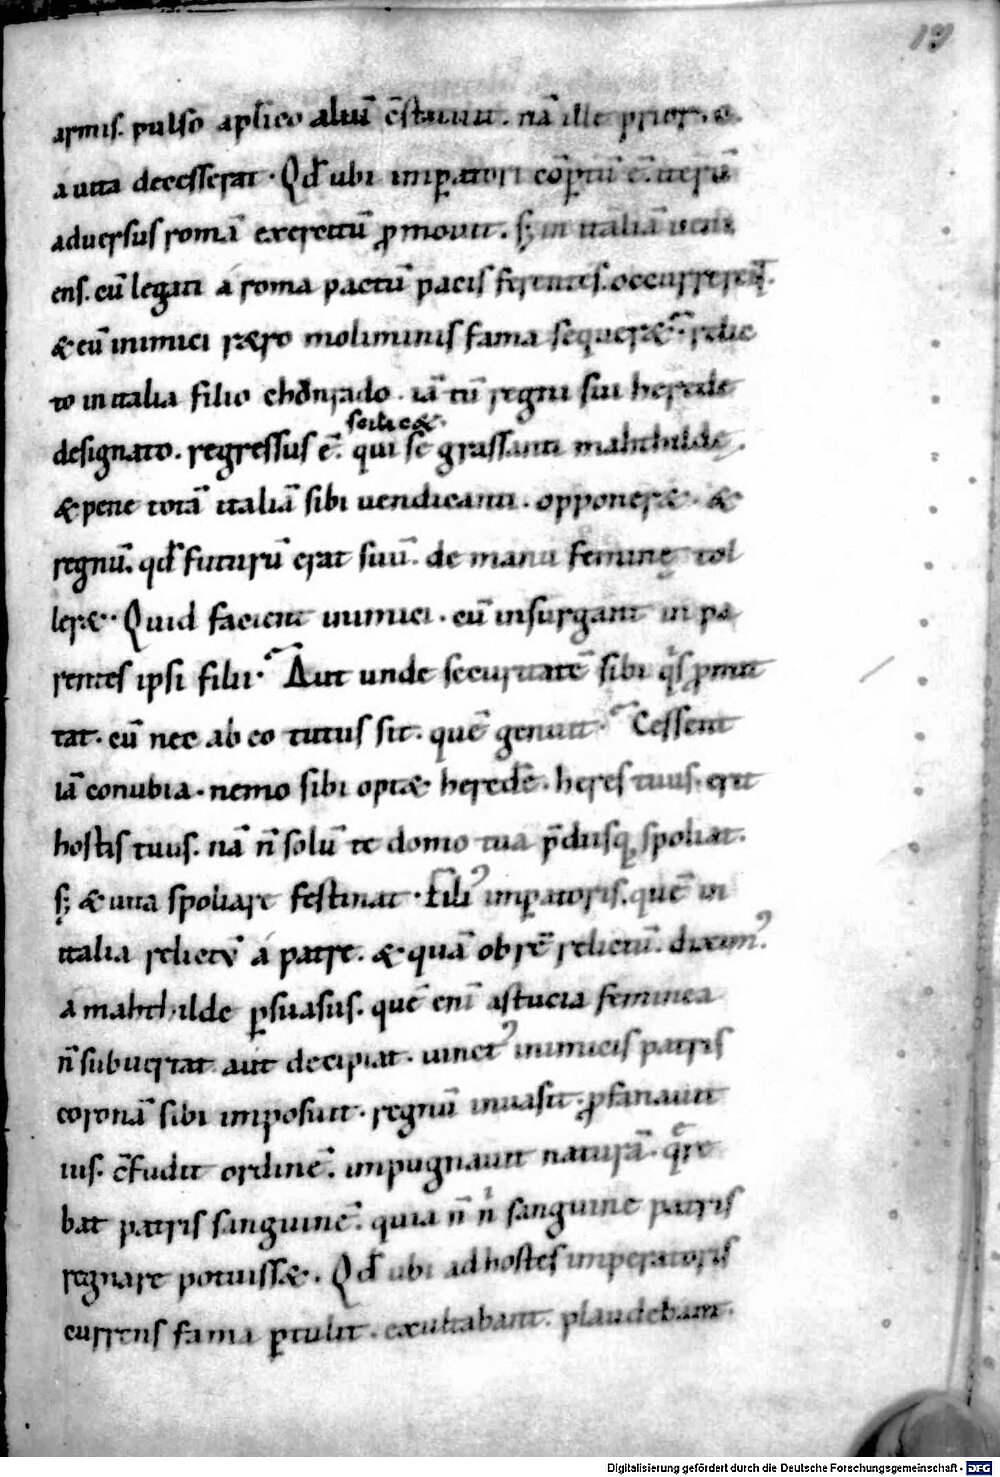 19
armis. pulso aplico aliū c̄stituit. nā ille prior. e.
a uita decesserat. Qđ ubi imꝑatori cōꝑtū ē. iterū
aduersus romā exercitū ꝓmouit. sꝫ in italiā ueni
ens. cū legati á roma pactū pacis ferentes. occurrerēt.
& eū inimici rætro moliminis fama sequeræt. relic
to in italia filio chōnrado. iā tū regni sui herede
designato. regressus ē. qui se grassanti mahthilde.
scilic&
& pene totā italiā sibi uendicanti. opponeræ. &
regnū. qđ futurū erat suū. de manu feminę tol
leræ. Quid facient inimici. cū insurgant in pa
rentes ipsi filii. Aut unde securitatē sibi qͥs ꝓmit
tat. cū nec ab eo tutus sit. quē genuit. Cessent
iā conubia. nemo sibi optæ heredē. heres tuus. erit
hostis tuus. nā n̄ solū te domo tua p̄diisq; spoliat.
sꝫ & uita spoliare festinat. Filiꝰ imꝑatoris. quē in
italia relictū á patre. & quā ob rē relictū. diximꝰ.
a mahthilde ꝑsuasus. quē enī astucia feminea
n̄ subuertat aut decipiat. uinctꝰ inimicis patris
coronā sibi imposuit. regnū inuasit. ꝓfanauit
ius. c̄fudit ordinē. impugnauit naturā. q̄re
bat patris sanguinē. quia n̄ nͥ sanguine patris
regnare potuissæ. Qđ ubi ad hostes imperatoris
currens fama ꝑtulit. exultabant. plaudebant.
Digitalisierung gefördert durch die Deutsche Forschungsgemeinschaft - DFG